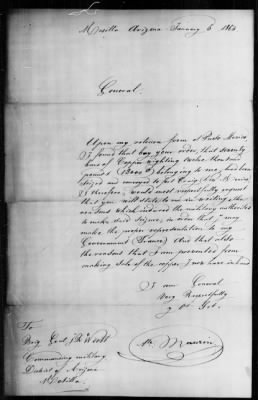 Mesilla Arizona January 6 1863
General.
Upon my return from el Paso Mexico,
I found that buy your order, that seventy
bars of Copper weighting twelve thousand
pounds (12000 #) belonging to me, had been
seized and conveyed to fort Craig, New Mexico,
I therefore, would most respectfully request
that you will state to me in writing, the
reasons which induced the military authorities
to make said seizure, in order that I may
make the proper representation to my
Government (France) And that also
the reasons that I am prevented from
making Sale of the copper, I now have in hand
I am General
Very Respectfully
y Obt Svt.
To
Brig Genl J R West
Commanding military
District of Arizona
Mesilla
M. Maurin